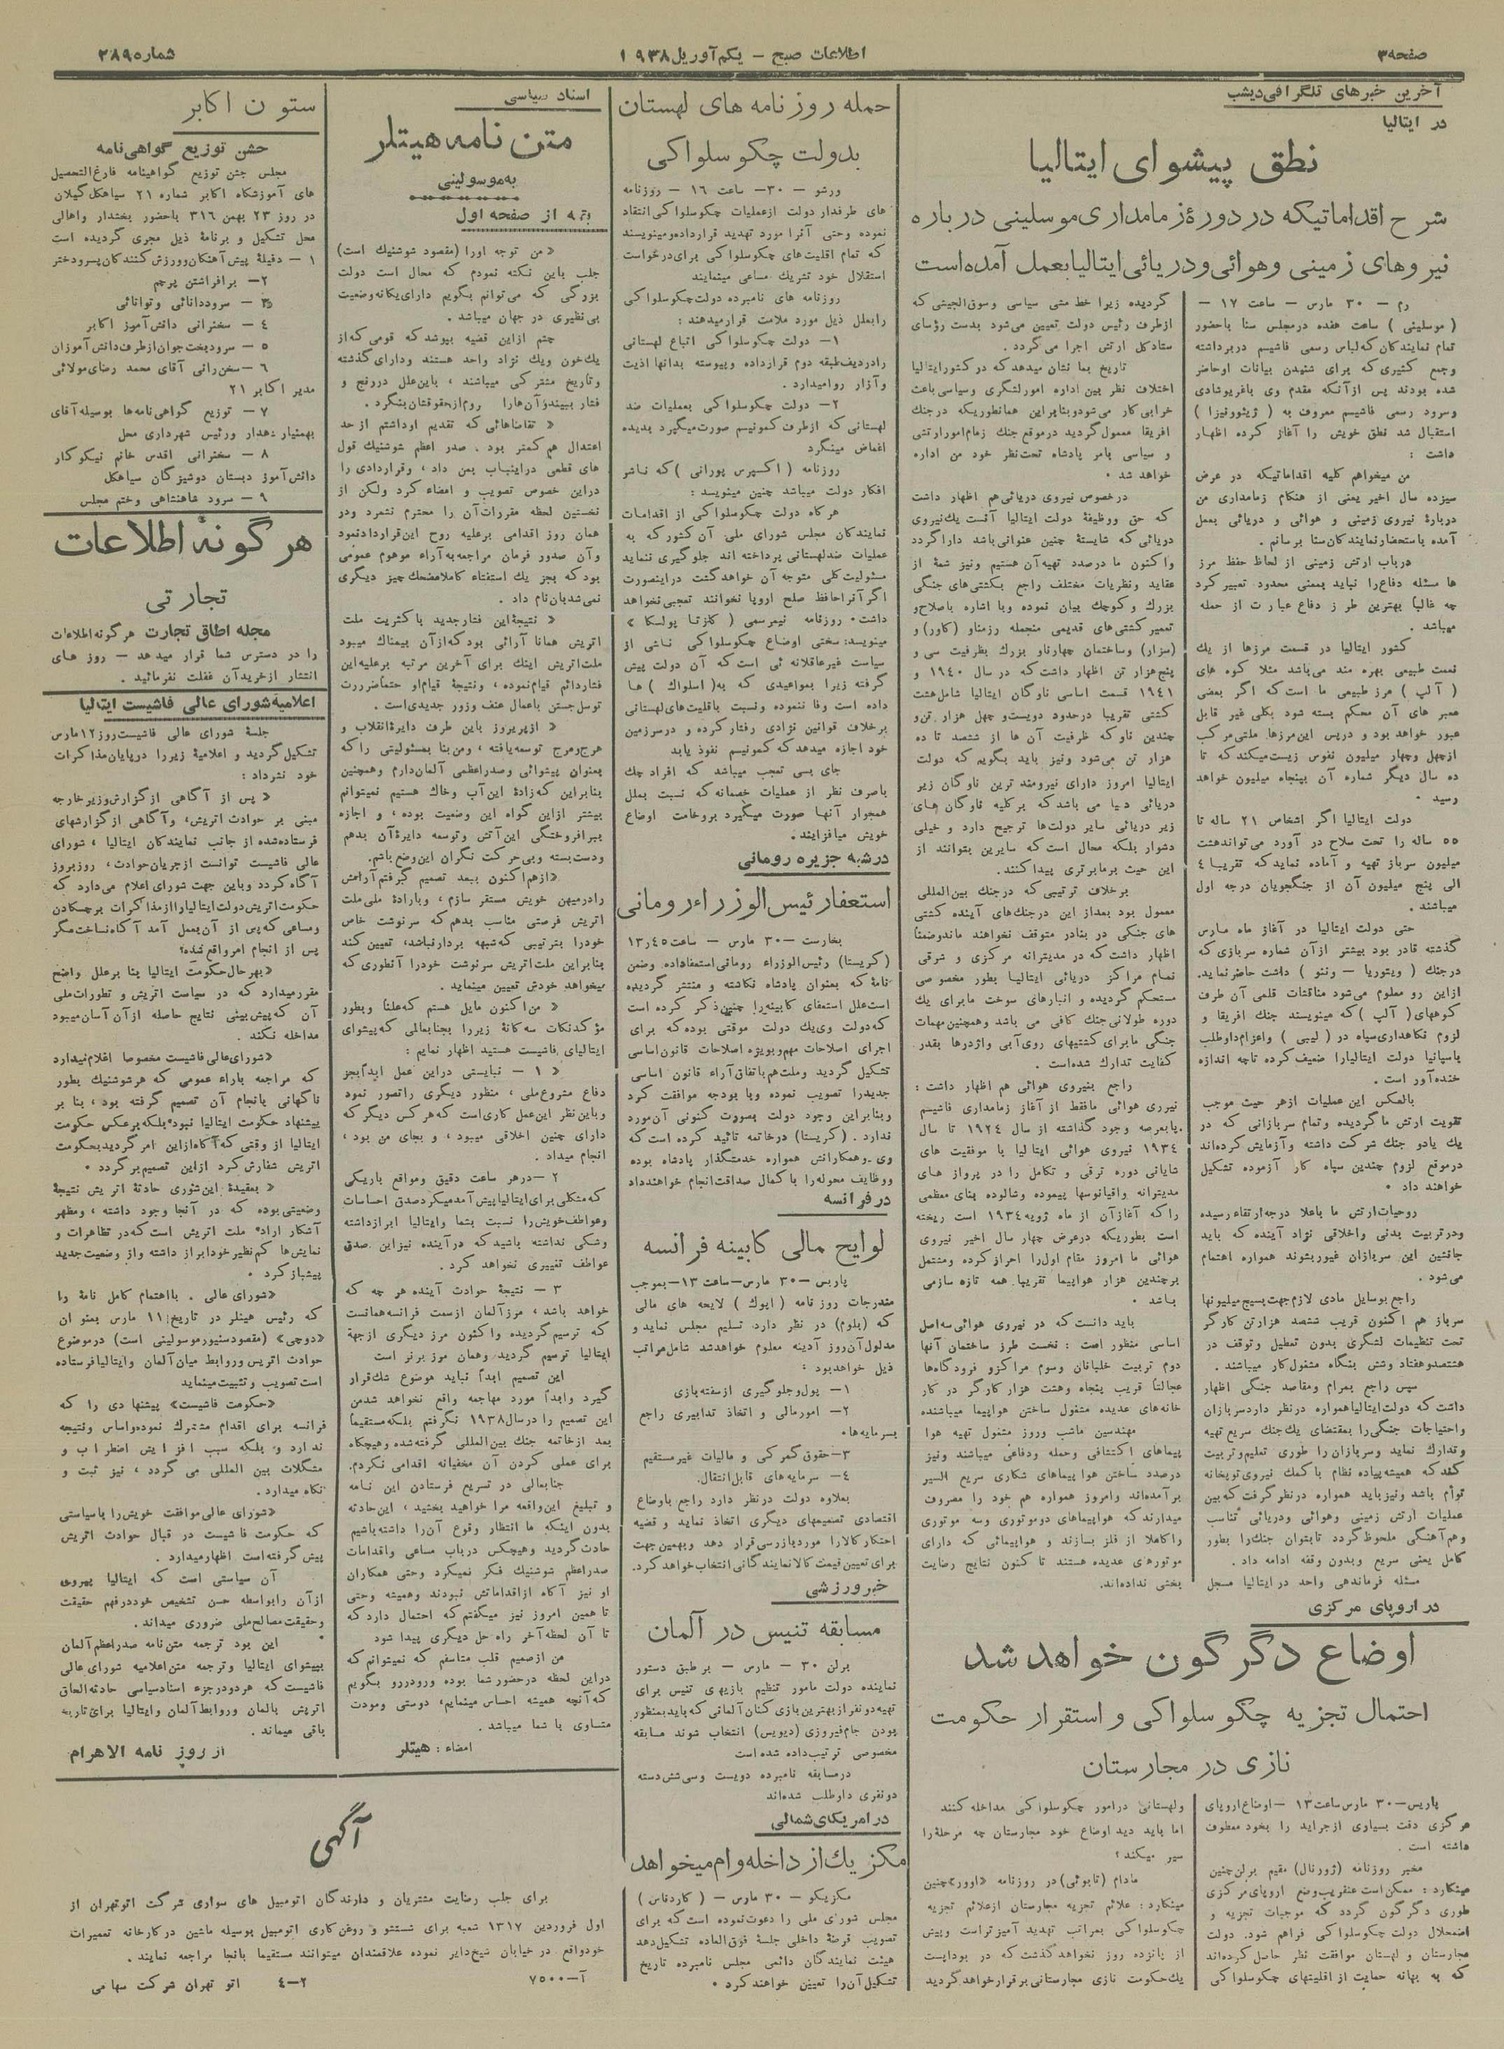 صفحه۳
اطلاعات صبح – یکم آوریل ۱۹۳۸
شماره ۳۸۹۵
آخرین خبرهای تلگرافی دیشب
در ایتالیا
نطق پیشوای ایتالیا
شرح اقداماتیکه در دورۀ زمامداری موسلینی درباره
نیروهای زمینی و هوائی و دریائی ایتالیا بعمل آمده است
رم – ۳۰ مارس – ساعت ۱۷ –
( موسلینی ) ساعت هفده درمجلس سنا باحضور
تمام نمایندگان که لباس رسمی فاشیسم دربرداشته
وجمع کثیری که برای شنیدن بیانات اوحاضر
شده بودند پس ازآنکه مقدم وی باغریوشادی
وسرود رسمی فاشیسم معروف به ( ژیئووینزا )
استقبال شد نطق خویش را آغاز کرده اظهار
داشت :
من میخواهم کلیه اقداماتیکه در عرض
سیزده سال اخیر یعنی از هنگام زمامداری من
دربارۀ نیروی زمینی و هوائی و دریائی بعمل
آمده باستحضار نمایندگان سنا برسانم .
درباب ارتش زمینی از لحاظ حفظ مرز
ها مسئله دفاع را نباید بمعنی محدود تعبیر کرد
چه غالباً بهترین طرز دفاع عبارت از حمله
میباشد .
کشور ایتالیا در قسمت مرزها از یك
نعمت طبیعی بهره مند می‌باشد مثلا کوه های
( آلپ ) مرز طبیعی ما است که اگر بعضی
معبر های آن محکم بسته شود بکلی غیر قابل
عبور خواهد بود و درپس این مرزها ملتی مرکب
ازچهل وچهار میلیون نفوس زیست میکند که تا
ده سال دیگر شماره آن بپنجاه میلیون خواهد
رسید .
دولت ایتالیا اگر اشخاص ۲۱ ساله تا
۵۵ ساله را تحت سلاح در آورد می‌تواند هشت
میلیون سرباز تهیه و آماده نماید که تقریبا ٤
الی پنج میلیون آن از جنگجویان درجه اول
میباشند .
حتی دولت ایتالیا در آغاز ماه مارس
گذشته قادر بود بیشتر ازآن شماره سربازی که
درجنك ( ویتوریا – ونتو ) داشت حاضر نماید.
ازاین رو معلوم می‌شود مناقشات قلمی آن طرف
کوههای ( آلپ ) که مینویسند جنك افریقا و
لزوم نگاهداری سپاه در ( لیبی ) واعزام داوطلب
باسپانیا دولت ایتالیارا ضعیف کرده تاچه اندازه
خنده‌آور است .
بالعکس این عملیات ازهر حیث موجب
تقویت ارتش ما گردیده وتمام سربازانی که در
یك یادو جنك شرکت داشته وآزمایش کرده‌اند
درموقع لزوم چندین سپاه کار آزموده تشکیل
خواهند داد .
روحیات ارتش ما باعلا درجه ارتقاء رسیده
ودرتربیت بدنی واخلاقی نژاد آینده که باید
جانشین این سربازان غیور بشوند همواره اهتمام
می‌شود .
راجع بوسایل مادی لازم جهت بسیج میلیونها
سرباز هم اکنون قریب ششصد هزارتن کارگر
تحت تنظیمات لشگری بدون تعطیل وتوقف در
هشتصدوهفتاد وشش بنگاه مشغول کار میباشند .
سپس راجع بمرام ومقاصد جنگی اظهار
داشت که دولت ایتالیا همواره درنظر دارد سربازان
واحتیاجات جنگی را بمقتضای یك جنك سریع تهیه
وتدارك نماید وسربازان را طوری تعلیم وتربیت
کند که همیشه پیاده نظام باکمك نیروی توپخانه
توأم باشد ونیز باید همواره درنظر گرفت که بین
عملیات ارتش زمینی وهوائی ودریائی تناسب
وهم‌آهنگی ملحوظ گردد تابتوان جنك را بطور
کامل یعنی سریع وبدون وقفه ادامه داد .
مسئله فرماندهی واحد در ایتالیا مسجل
گردیده زیرا خط مشی سیاسی وسوق الجیشی که
ازطرف رئیس دولت تعیین می‌شود بدست رؤسای
ستاد کل ارتش اجرا می گردد .
تاریخ بما نشان میدهد که در کشور ایتالیا
اختلاف نظر بین اداره امور لشگری وسیاسی باعث
خرابی کار می‌شود وبنابراین همانطوریکه درجنك
افریقا معمول گردید درموقع جنك زمام امور ارتشی
و سیاسی بامر پادشاه تحت نظر خود من اداره
خواهد شد .
درخصوص نیروی دریائی هم اظهار داشت
که حق ووظیفۀ دولت ایتالیا آنست یك نیروی
دریائی که شایستۀ چنین عنوانی باشد دارا گردد
واکنون ما درصدد تهیه آن هستیم ونیز شمۀ از
عقاید ونظریات مختلف راجع بکشتی‌های جنگی
بزرك وکوچك بیان نموده وبا اشاره باصلاح و
تعمیر کشتی‌های قدیمی منجمله رزمناو (کاوور) و
(سزار) وساختمان چهارناو بزرك بظرفیت سی و
پنج هزار تن اظهار داشت که در سال ۱۹٤۰ و
۱۹٤۱ قسمت اساسی ناوگان ایتالیا شامل هشت
کشتی تقریبا درحدود دویست و چهل هزار تن و
چندین ناو که ظرفیت آن ها از ششصد تا ده
هزار تن می‌شود ونیز باید بگویم که دولت
ایتالیا امروز دارای نیرومند ترین ناوگان زیر
دریائی دنیا می باشد که برکلیه ناوگان های
زیر دریائی سایر دولت‌ها ترجیح دارد و خیلی
دشوار بلکه محال است که سایرین بتوانند از
این حیث برما برتری پیدا کنند.
برخلاف ترتیبی که درجنك بین‌المللی
معمول بود بعداز این درجنك‌های آینده کشتی
های جنگی در بنادر متوقف نخواهند ماند وضمناً
اظهار داشت که در مدیترانه مرکزی و شرقی
تمام مراکز دریائی ایتالیا بطور مخصوصی
مستحکم گردیده و انبارهای سوخت مابرای یك
دوره طولانی جنك کافی می باشد وهمچنین مهمات
جنگی ما برای کشتیهای روی آبی واژدرها بقدر
کفایت تدارك شده‌است.
راجع بنیروی هوائی هم اظهار داشت :
نیروی هوائی مافقط از آغاز زمامداری فاشیسم
پابعرصه وجود گذاشته از سال ۱۹۲٤ تا سال
۱۹۳٤ نیروی هوائی ایتالیا با موفقیت های
شایانی دوره ترقی و تکامل را در پرواز های
مدیترانه واقیانوسها پیموده وشالوده بنای معظمی
را که آغاز آن از ماه ژویه ۱۹۳٤ است ریخته
است بطوریکه درعرض چهار سال اخیر نیروی
هوائی ما امروز مقام اول را احراز کرده ومشتمل
برچندین هزار هواپیما تقریباً همه تازه سازمی
باشد .
باید دانست که در نیروی هوائی سه اصل
اساسی منظور است : نخست طرز ساختمان آنها
دوم تربیت خلبانان وسوم مراکز و فرودگاه‌ها
عجالتاً قریب پنجاه وهشت هزار کارگر در کار
خانه‌های عدیده مشغول ساختن هواپیما میباشند
مهندسین ماشب وروز مشغول تهیه هوا
پیماهای اکتشافی وحمله ودفاعی میباشند ونیز
درصدد ساختن هواپیماهای شکاری سریع السیر
برآمده‌اند وامروز همواره هم خود را مصروف
میدارند که هواپیماهای دوموتوری وسه موتوری
را کاملا از فلز بسازند و هواپیمائی که دارای
موتورهای عدیده هستند تا کنون نتایج رضایت
بخشی نداده‌اند.
در اروپای مرکزی
اوضاع دگرگون خواهد شد
احتمال تجزیه چکوسلواکی و استقرار حکومت
نازی در مجارستان
پاریس–۳۰ مارس ساعت ۱۳ –اوضاع اروپای
مرکزی دقت بسیاری ازجراید را بخود معطوف
داشته است .
مخبر روزنامه (ژورنال) مقیم برلن چنین
مینگارد : ممکن است عنقریب وضع اروپای مرکزی
طوری دگرگون گردد که موجبات تجزیه و
اضمحلال دولت چکوسلواکی فراهم شود. دولت
مجارستان و لهستان موافقت نظر حاصل کرده‌اند
که به بهانه حمایت از اقلیتهای چکوسلواکی
ولهستانی درامور چکوسلواکی مداخله کنند
اما باید دید اوضاع خود مجارستان چه مرحلۀ را
سیر میکند ؟
مادام (تابوئی) در روزنامه «اوور» چنین
مینگارد : علائم تجزیه مجارستان ازعلائم تجزیه
چکوسلواکی بمراتب تهدید آمیزتر است وبیش
از پانزده روز نخواهد گذشت که در بوداپست
یك حکومت نازی مجارستانی برقرار خواهد گردید
حمله روزنامه های لهستان
بدولت چکوسلواکی
ورشو – ۳۰– ساعت ۱٦ – روزنامه
های طرفدار دولت ازعملیات چکوسلواکی انتقاد
نموده وحتی آنرا مورد تهدید قرارداده ومینویسند
که تمام اقلیت‌های چکوسلواکی برای درخواست
استقلال خود تشریك مساعی مینمایند
روزنامه های نامبرده دولت چکوسلواکی
رابعلل ذیل مورد ملامت قرار میدهند :
۱– دولت چکوسلواکی اتباع لهستانی
رادرردیف طبقه دوم قرارداده وپیوسته بدانها اذیت
وآزار روا میدارد .
۲– دولت چکوسلواکی بعملیات ضد
لهستانی که ازطرف کمونیسم صورت میگیرد بدیده
اغماض مینگرد
روزنامه ( اکسپرس پورانی ) که ناشر
افکار دولت میباشد چنین مینویسد :
هرگاه دولت چکوسلواکی از اقدامات
نمایندگان مجلس شورای ملی آن کشور که به
عملیات ضد لهستانی پرداخته اند جلوگیری ننماید
مسئولیت کلی متوجه آن خواهد گشت دراینصورت
اگر آنرا حافظ صلح اروپا نخوانند تعجبی نخواهد
داشت. روزنامه نیمرسمی ( گازتا پولسکا )
مینویسد: سختی اوضاع چکوسلواکی ناشی از
سیاست غیرعاقلانه ئی است که آن دولت پیش
گرفته زیرا بمواعیدی که به( اسلواك ) ها
داده است وفا ننموده ونسبت باقلیت‌های لهستانی
برخلاف قوانین نژادی رفتار کرده و درسرزمین
خود اجازه میدهد که کمونیسم نفوذ یابد
جای بسی تعجب میباشد که افراد چك
باصرف نظر از عملیات خصمانه که نسبت بملل
همجوار آنها صورت میگیرد بروخامت اوضاع
خویش میافزایند.
درشبه جزیره رومانی
استعفار ئیس الوزراء رومانی
بخارست –۳۰ مارس – ساعت ۱۳٫٤۵
(کریستا) رئیس‌الوزراء رومانی استعفا داده. وضمن
نامۀ که بعنوان پادشاه نگاشته و منتشر گردیده
است علل استعفای کابینه را چنین ذکر کرده است
که دولت وی یك دولت موقتی بوده که برای
اجرای اصلاحات مهم وبویژه اصلاحات قانون اساسی
تشکیل گردید وملت هم باتفاق آراء قانون اساسی
جدیدرا تصویب نموده وبا بودجه موافقت کرد
وبنابراین وجود دولت بصورت کنونی آن مورد
ندارد . (کریستا) درخاتمه تائید کرده است که
وی وهمکارانش همواره خدمتگذار پادشاه بوده
ووظایف محوله را با کمال صداقت انجام خواهند داد
درفرانسه
لوایح مالی کابینه فرانسه
پاریس –۳۰ مارس–ساعت ۱۳–بموجب
مندرجات روزنامه ( اپوك ) لایحه های مالی
که (بلوم) در نظر دارد تسلیم مجلس نماید و
مدلول آن روز آدینه معلوم خواهد شد شامل مراتب
ذیل خواهد بود :
۱– پول وجلوگیری ازسفته‌بازی
۲– امور مالی و اتخاذ تدابیری راجع
بسرمایه‌ها.
۳–حقوق گمرکی و مالیات غیر مستقیم
٤– سرمایه‌های قابل‌انتقال.
بعلاوه دولت درنظر دارد راجع باوضاع
اقتصادی تصمیمهای دیگری اتخاذ نماید و قضیه
احتکار کالارا مورد بازرسی قرار دهد وبهمین جهت
برای تعیین قیمت کالا نمایندگانی انتخاب خواهد کرد.
خبر ورزشی
مسابقه تنیس در آلمان
برلن ۳۰ – مارس – بر طبق دستور
نماینده دولت مامور تنظیم بازیهای تنیس برای
تهیه دونفر ازبهترین بازی کنان آلمانی که باید بمنظور
بودن جام فیروزی (دیویس) انتخاب شوند مسابقه
مخصوصی ترتیب داده شده است
درمسابقه نامبرده دویست وسی شش دسته
دونفری داوطلب شده‌اند
در امریکای شمالی
مکزیك از داخله وام میخواهد
مکزیکو – ۳۰ مارس – ( کاردناس )
مجلس شورای ملی را دعوت نموده است که برای
تصویب قرضۀ داخلی جلسۀ فوق‌العاده تشکیل دهد
هیئت نمایندگان دائمی مجلس نامبرده تاریخ
تشکیل آن را تعیین خواهند کرد .
اسناد سیاسی
متن نامه هیتلر
به موسولینی
بقیه از صفحه اول
«من توجه اورا (مقصود شوشنیك است)
جلب باین نکته نمودم که محال است دولت
بزرگی که می‌توانم بگویم دارای یگانه وضعیت
بی‌نظیری در جهان میباشد .
چشم ازاین قضیه بپوشد که قومی که از
یك خون ویك نژاد واحد هستند ودارای گذشته
وتاریخ مشترکی میباشند ، باین علل دررنج و
فشار ببیند وآن هارا محروم از حقوقشان بنگرد .
« تقاضاهائی که تقدیم اوداشتم از حد
اعتدال هم کمتر بود . صدر اعظم شوشنیك قول
های قطعی دراینباب بمن داد ، وقراردادی را
دراین خصوص تصویب و امضاء کرد ولکن از
نخستین لحظه مقررات آن را محترم نشمرد ودر
همان روز اقدامی برعلیه روح این قرارداد نمود
وآن صدور فرمان مراجعه به آراء موهوم عمومی
بود که بجز یك استفتاء کاملا مضحك چیز دیگری
نمی شد بآن نام داد .
« نتیجۀ این فشار جدید با کثریت ملت
اتریش همانا آرائی بود که ازآن بیمناك میبود
ملت اتریش اینك برای آخرین مرتبه برعلیه این
فشار دائم قیام نموده ، ونتیجۀ قیام او حتماً ضررت
توسل جستن باعمال عنف وزور جدیدی است.
« ازپریروز باین طرف دایرۀ انقلاب و
هرج ومرج توسعه یافته ، ومن بنا بمسئولیتی را که
بعنوان پیشوائی وصدراعظمی آلمان دارم وهمچنین
بنابراین که زادۀ این آب وخاك هستیم نمیتوانم
بیشتر ازاین گواه این وضعیت بوده ، و اجازه
ببرافروختگی این آتش وتوسعه دایرۀ آن بدهم
ودست بسته وبی حرکت نگران این وضع باشم.
«ازهم اکنون ببعد تصمیم گرفتم آرامش
رادرمیهن خویش مستقر سازم ، وبارادۀ ملی ملت
اتریش فرصتی مناسب بدهم که سرنوشت خاص
خودرا بترتیبی که شبهه بردار نباشد، تعیین کند
بنابراین ملت اتریش سرنوشت خودرا آنطوری که
میخواهد خودش تعیین مینماید .
«من اکنون مایل هستم که علناً وبطور
مؤکد نکات سه گانۀ زیررا بجنابعالی که پیشوای
ایتالیای فاشیست هستید اظهار نمایم :
« ۱ – نبایستی دراین عمل ابداً بجز
دفاع مشروع ملی ، منظور دیگری را تصور نمود
وباین نظر این عمل کاری است که هر کس دیگر که
دارای چنین اخلاقی میبود ، و بجای من بود ،
انجام میداد .
۲ –درهر ساعت دقیق ومواقع باریکی
که مشکلی برای ایتالیا پیش آمد میکرد صدق احساسات
وعواطف خویش را نسبت بشما وایتالیا ابرازداشته
وشکی نداشته باشید که درآینده نیزاین صدق
عواطف تغییری نخواهد کرد .
۳ – نتیجۀ حوادث آینده هر چه که
خواهد باشد ، مرز آلمان ازسمت فرانسه همانست
که ترسیم گردیده واکنون مرز دیگری ازجهة
ایتالیا ترسیم گردید. وهمان مرز برنر است
این تصمیم ابداً نباید موضوع شك قرار
گیرد وابداً مورد مهاجمه واقع نخواهد شد من
این تصمیم را درسال ۱۹۳۸ نگرفتم بلکه مستقیماً
بعد ازخاتمه جنك بین‌المللی گرفته شده وهیچگاه
برای عملی کردن آن مخفیانه اقدامی نکردم.
جنابعالی در تسریع فرستادن این نامه
و تبلیغ این واقعه مرا خواهید بخشید ، این حادثه
بدون اینکه ما انتظار وقوع آن را داشته باشیم
حادث گردید وهیچکس درباب مساعی واقدامات
صدراعظم شوشنیك فکر نمیکرد وحتی همکاران
او نیز آگاه ازاقداماتش نبودند وهمیشه وحتی
تا همین امروز نیز میگفتم که احتمال دارد که
تا آن لحظه آخر راه حل دیگری پیدا شود
من ازصمیم قلب متأسفم که نمیتوانم که
دراین لحظه درحضور شما بوده ورودررو بگویم
که آنچه همیشه احساس مینمایم، دوستی ومودت
متساوی با شما میباشد .
امضاء : هیتلر
ستون اکابر
جشن توزیع گواهی‌نامه
مجلس جشن توزیع گواهینامه فارغ‌التحصیل
های آموزشگاه اکابر شماره ۲۱ سیاهکل گیلان
در روز ۲۳ بهمن ۳۱٦ باحضور بخشدار واهالی
محل تشکیل و برنامۀ ذیل مجری گردیده است
۱ – دفیلۀ پیش آهنگان وورزش کنندگان پسر ودختر
۲– برافراشتن پرچم
۳– سرود دانائی وتوانائی
٤ – سخنرانی دانش‌آموز اکابر
۵ – سرود بخت جوان ازطرف دانش آموزان
٦ – سخن رانی آقای محمد رضای مولائی
مدیر اکابر ۲۱
۷ – توزیع گواهی نامه‌ها بوسیله آقای
بهمنیار بخشدار ورئیس شهرداری محل
۸ – سخنرانی اقدس خانم نیکوکار
دانش‌آموز دبستان دوشیزگان سیاهکل
۹ – سرود شاهنشاهی وختم مجلس
هر گونۀ اطلاعات
تجارتی
مجله اطاق تجارت هر گونه اطلاعات
را در دسترس شما قرار میدهد – روز های
انتشار از خرید آن غفلت نفرمائید .
اعلامیه شورای عالی فاشیست ایتالیا
جلسۀ شورای عالی فاشیست روز ۱۲ مارس
تشکیل گردید و اعلامیۀ زیررا درپایان مذاکرات
خود نشرداد :
« پس از آگاهی ازگزارش وزیر خارجه
مبنی بر حوادث اتریش، وآگاهی ازگزارشهای
فرستاده شده از جانب نمایندگان ایتالیا ، شورای
عالی فاشیست توانست ازجریان حوادث، روز بروز
آگاه گردد وباین جهت شورای اعلام می‌دارد که
حکومت اتریش دولت ایتالیا را ازمذاکرات برچسکادن
ومساعی که پس از آن بعمل آمد آگاه نساخت مگر
پس از انجام امر واقع شده؟
«بهرحال حکومت ایتالیا بنا برعلل واضح
مقررمیدارد که در سیاست اتریش و تطورات ملی
آن که پیش‌بینی نتایج حاصله ازآن آسان میبود
مداخله نکند .
«شورای عالی فاشیست مخصوصا اعلام میدارد
که مراجعه باراء عمومی که هرشوشنیك بطور
ناگهانی بانجام آن تصمیم گرفته بود ، بنا بر
پیشنهاد حکومت ایتالیا نبود، بلکه برعکس حکومت
ایتالیا از وقتی که آگاه ازاین امر گردید بحکومت
اتریش سفارش کرد ازاین تصمیم برگردد .
« بعقیدۀ این شوری حادثۀ اتریش نتیجۀ
وضعیتی بوده که در آنجا وجود داشته ، ومظهر
آشکار ارادۀ ملت اتریش است که در تظاهرات و
نمایش‌ها کم نظیر خود ابراز داشته واز وضعیت جدید
پیشباز کرد .
«شورای عالی . بااهتمام کامل نامۀ را
که رئیس هیتلر در تاریخ ۱۱ مارس بعنوان
«دوچی» (مقصود سنیور موسولینی است) درموضوع
حوادث اتریس وروابط میان آلمان وایتالیا فرستاده
است تصویب وتثبیت مینماید
«حکومت فاشیست» پیشنهادی را که
فرانسه برای اقدام مشترك نموده واساس ونتیجه
ندارد و بلکه سبب افزایش اضطراب و
مشگلات بین المللی می گردد ، نیز ثبت و
نگاه میدارد .
«شورای عالی موافقت خویش را باسیاستی
که حکومت فاشیست در قبال حوادث اتریش
پیش گرفته است اظهار میدارد .
آن سیاستی است که ایتالیا پیروی
ازآن را بواسطه حسن تشخیص خود درفهم حقیقت
وحقیقت مصالح ملی ضروری میداند.
این بود ترجمه متن نامه صدراعظم آلمان
بپیشوای ایتالیا وترجمه متن اعلامیه شورای عالی
فاشیست که هردو درجزء اسناد سیاسی حادثه الحاق
اتریش بالمان وروابط آلمان وایتالیا برای تاریخ
باقی میماند .
از روزنامه الاهرام
آگهی
برای جلب رضایت مشتریان و دارندگان اتومبیل های سواری شرکت اتوتهران از
اول فروردین ۱۳۱۷ شعبه برای شستشو و روغن کاری اتومبیل بوسیله ماشین درکارخانه تعمیرات
خودواقع در خیابان شیخ دایر نموده علاقمندان میتوانند مستقیما بانجا مراجعه نمایند .
آ–۷۵۰۰
۲–٤
اتو تهران شرکت سهامی